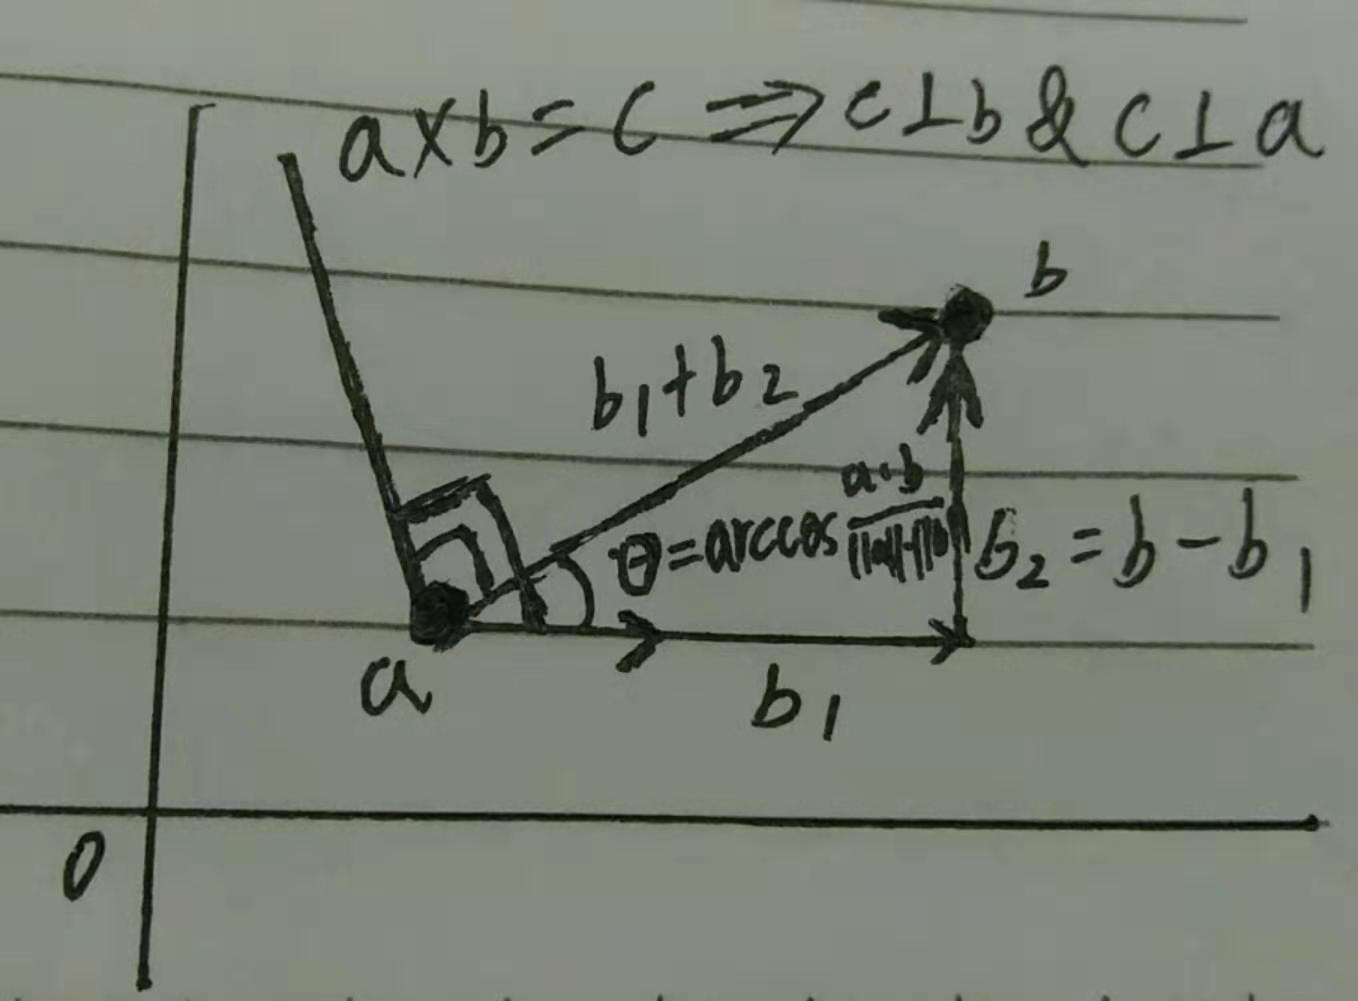 a×b=c ⇒ c⊥b & c⊥a
b
b₁+b₂
θ=arccos a·b / ||a||·||b||
b₂=b-b₁
a
b₁
0